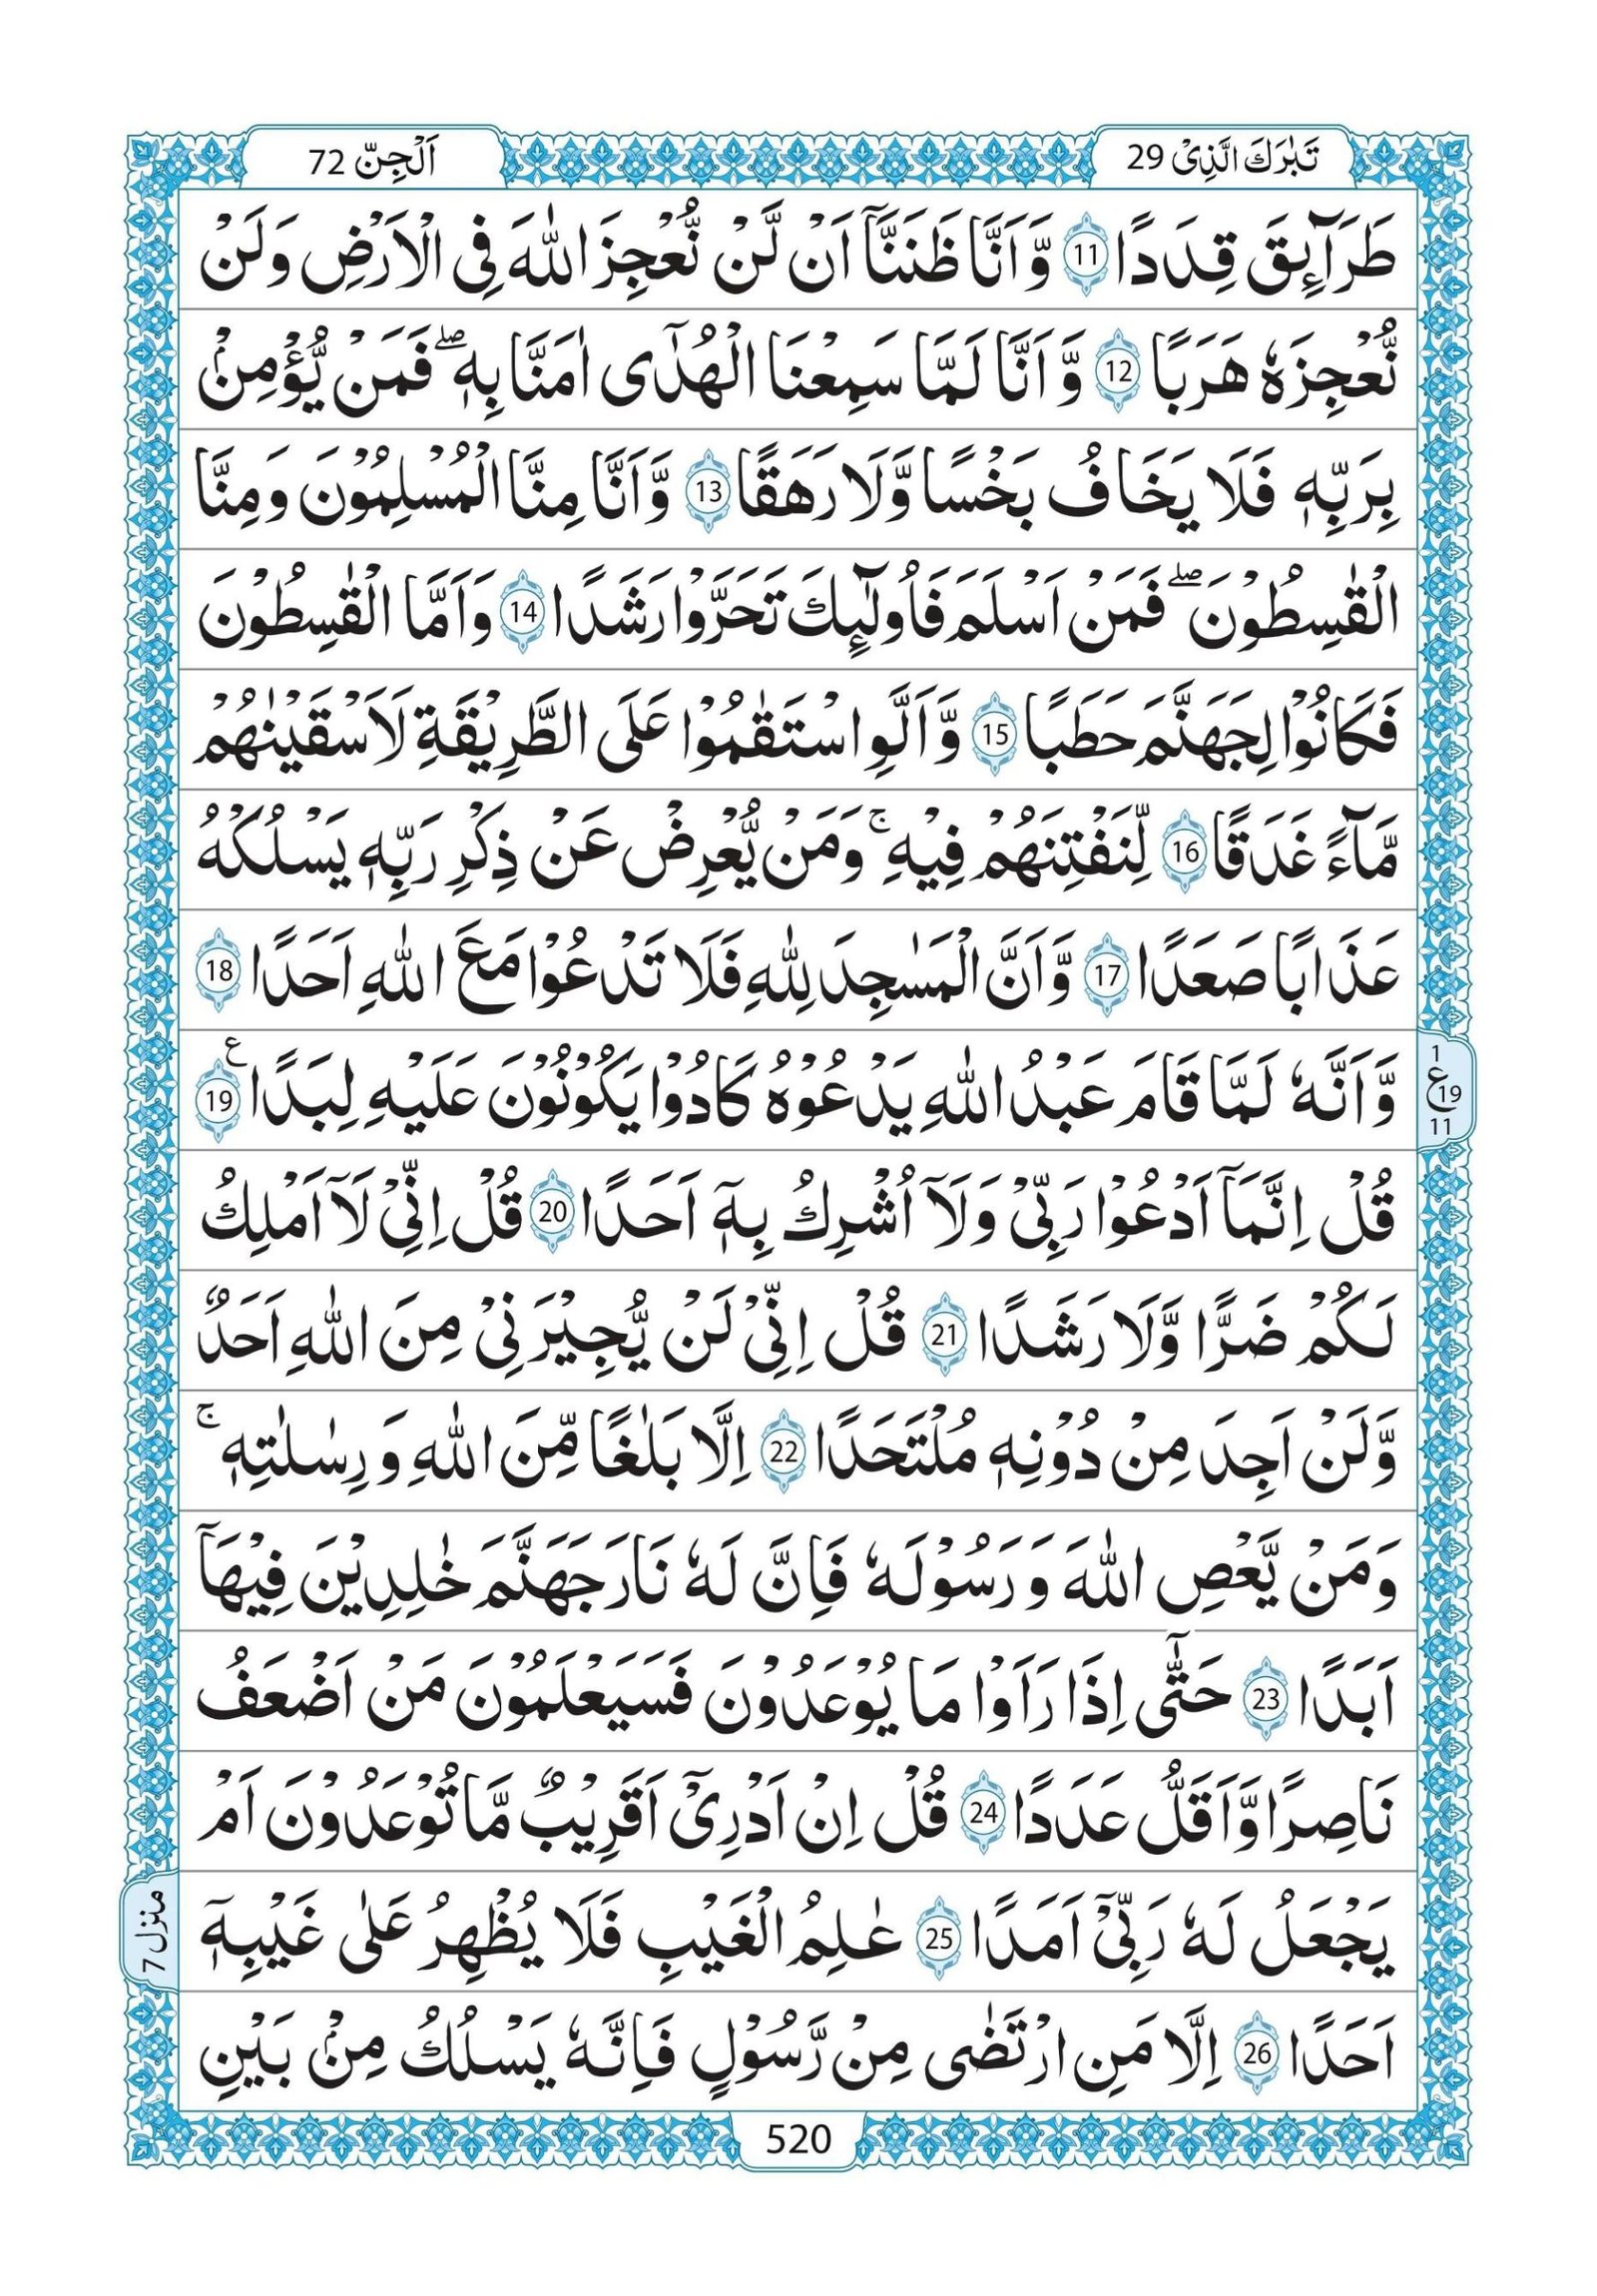 تَبٰرَكَ الَّذِیْ 29
اَلْجِنّ 72
طَرَآئِقَ قِدَدًا 11 وَّ اَنَّا ظَنَنَّاۤ اَنْ لَّنْ نُّعْجِزَ اللّٰهَ فِی الْاَرْضِ وَ لَنْ
نُّعْجِزَهٗ هَرَبًا 12 وَّ اَنَّا لَمَّا سَمِعْنَا الْهُدٰۤی اٰمَنَّا بِهٖ ؕۖ فَمَنْ یُّؤْمِنْۢ
بِرَبِّهٖ فَلَا یَخَافُ بَخْسًا وَّ لَا رَهَقًا 13 وَّ اَنَّا مِنَّا الْمُسْلِمُوْنَ وَ مِنَّا
الْقٰسِطُوْنَ ؕۖ فَمَنْ اَسْلَمَ فَاُولٰٓئِكَ تَحَرَّوْا رَشَدًا 14 وَ اَمَّا الْقٰسِطُوْنَ
فَكَانُوْا لِجَهَنَّمَ حَطَبًا 15 وَّ اَنْ لَّوِ اسْتَقٰمُوْا عَلَی الطَّرِیْقَةِ لَاَسْقَیْنٰهُمْ
مَّآءً غَدَقًا 16 لِّنَفْتِنَهُمْ فِیْهِ ۚ وَ مَنْ یُّعْرِضْ عَنْ ذِكْرِ رَبِّهٖ یَسْلُكْهُ
عَذَابًا صَعَدًا 17 وَّ اَنَّ الْمَسٰجِدَ لِلّٰهِ فَلَا تَدْعُوْا مَعَ اللّٰهِ اَحَدًا 18
وَّ اَنَّهٗ لَمَّا قَامَ عَبْدُ اللّٰهِ یَدْعُوْهُ كَادُوْا یَكُوْنُوْنَ عَلَیْهِ لِبَدًا 19 ع
1
ع 19
11
قُلْ اِنَّمَاۤ اَدْعُوْا رَبِّیْ وَ لَاۤ اُشْرِكُ بِهٖۤ اَحَدًا 20 قُلْ اِنِّیْ لَاۤ اَمْلِكُ
لَكُمْ ضَرًّا وَّ لَا رَشَدًا 21 قُلْ اِنِّیْ لَنْ یُّجِیْرَنِیْ مِنَ اللّٰهِ اَحَدٌ
وَّ لَنْ اَجِدَ مِنْ دُوْنِهٖ مُلْتَحَدًا 22 اِلَّا بَلٰغًا مِّنَ اللّٰهِ وَ رِسٰلٰتِهٖ ۚ
وَ مَنْ یَّعْصِ اللّٰهَ وَ رَسُوْلَهٗ فَاِنَّ لَهٗ نَارَ جَهَنَّمَ خٰلِدِیْنَ فِیْهَاۤ
اَبَدًا 23 حَتّٰۤی اِذَا رَاَوْا مَا یُوْعَدُوْنَ فَسَیَعْلَمُوْنَ مَنْ اَضْعَفُ
نَاصِرًا وَّ اَقَلُّ عَدَدًا 24 قُلْ اِنْ اَدْرِیْۤ اَقَرِیْبٌ مَّا تُوْعَدُوْنَ اَمْ
یَجْعَلُ لَهٗ رَبِّیْۤ اَمَدًا 25 عٰلِمُ الْغَیْبِ فَلَا یُظْهِرُ عَلٰی غَیْبِهٖۤ
اَحَدًا 26 اِلَّا مَنِ ارْتَضٰی مِنْ رَّسُوْلٍ فَاِنَّهٗ یَسْلُكُ مِنْۢ بَیْنِ
منزل 7
520